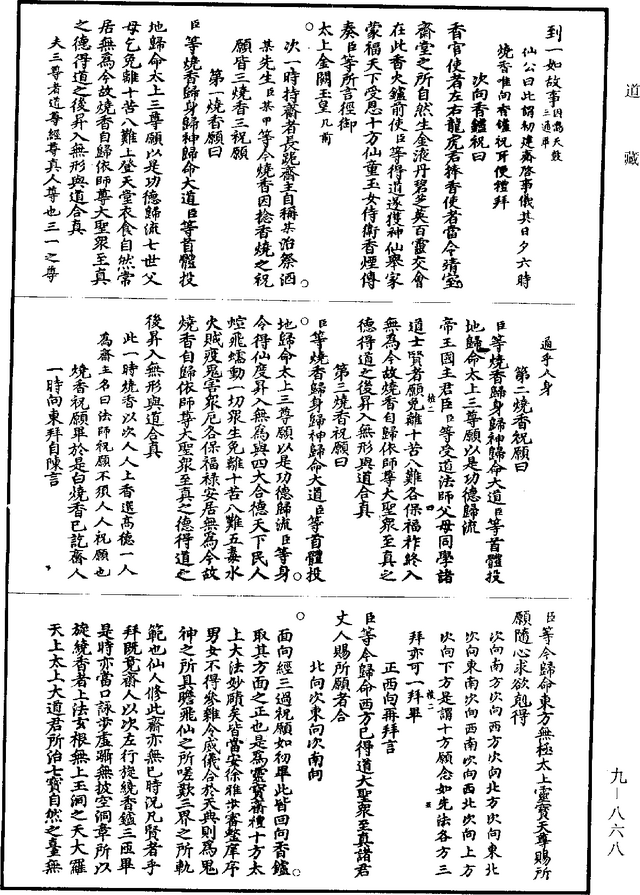 道藏
到一如故事因鳴天鼓三通畢
仙公曰此謂初建齋啓事儀其日夕六時
燒香唯向香鑪祝耳便禮拜
次向香鑪祝曰
香官使者左右龍虎君捧香使者當令靖室
齋堂之所自然生金液丹碧芝英百靈交會
在此香火鑪前使臣等得道遂獲神仙舉家
蒙福天下受恩十方仙童玉女侍衛香煙傳
奏臣等所言徑御
太上金闕玉皇几前
次一時持齋者長跪齋主自稱某治祭酒
某先生臣某甲等今燒香因捻香燒之祝
願皆三燒香三祝願
第一燒香願曰
臣等燒香歸身歸神歸命大道臣等首體投
地歸命太上三尊願以是功德歸流七世父
母乞免離十苦八難上登天堂衣食自然常
居無爲今故燒香自歸依師尊大聖衆至真
之德得道之後昇入無形與道合真
夫三尊者道尊經尊真人尊也三一之尊
過乎人身
第二燒香祝願曰
臣等燒香歸身歸神歸命大道臣等首體投
地歸命太上三尊願以是功德歸流
帝王國主君臣臣等受道法師父母同學諸
道士賢者願免離十苦八難各保福祚終入
無爲今故燒香自歸依師尊大聖衆至真之
德得道之後昇入無形與道合真
第三燒香祝願曰
臣等燒香歸身歸神歸命大道臣等首體投
地歸命太上三尊願以是功德歸流臣等身
令得仙度昇入無爲與四大合德天下民人
蜫飛蠕動一切衆生免離十苦八難五毒水
火賊疫鬼害衆厄各保福祿安居無爲今故
燒香自歸依師尊大聖衆至真之德得道之
後昇入無形與道合真
此一時燒香以次人人上香選高德一人
爲齋主名曰法師祝願不須人人祝願也
燒香祝願畢於是白燒香已訖齋人
一時向東拜自陳言
臣等今歸命東方無極太上靈寶天尊賜所
願隨心求欲剋得
次向南方次向西方次向北方次向東北
次向東南次向西南次向西北次向上方
次向下方是謂十方願念如先法各方三
拜亦可一拜畢
正西向再拜言
臣等今歸命西方已得道大聖衆至真諸君
丈人賜所願者合
北向次東向次南向
面向經三過祝願如初畢此皆回向香鑪
取其方面之正也是爲靈寶齋禮十方太
上大法妙賾矣皆當安徐雅步審整庠序
男女不得參雜令威儀合於天典則爲鬼
神之所具瞻飛仙之所嗟歎三界之所軌
範也仙人修此齋亦無巳時況凡賢者乎
拜既竟齋人以次左行旋繞香鑪三匝畢
是時亦當口詠步虛躡無披空洞章所以
旋繞香者上法玄根無上玉洞之天大羅
天上太上大道君所治七寶自然之臺無
九-八六八